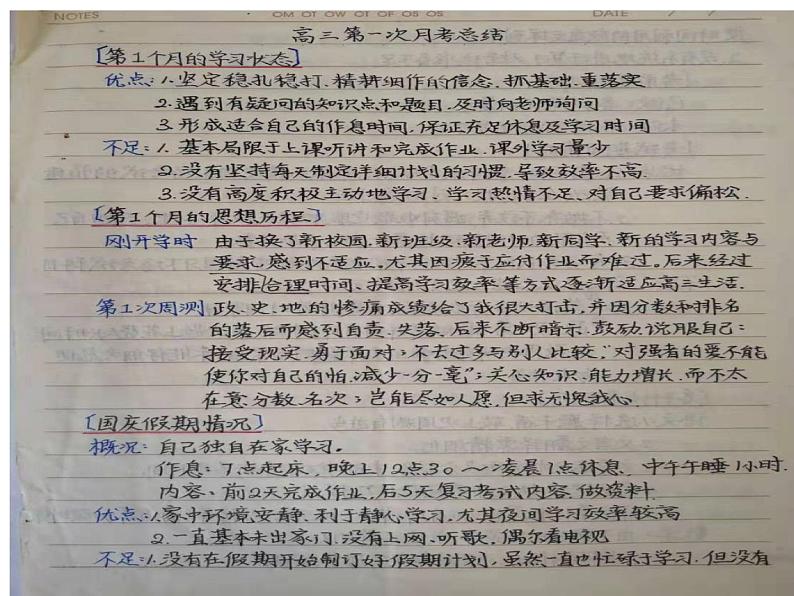 NOTES
OM OT OW OT OF OS OS
DATE / /
高三第一次月考总结
[第1个月的学习状态]
优点:1.坚定稳扎稳打、精耕细作的信念,抓基础,重落实
2.遇到有疑问的知识点和题目,及时向老师询问
3.形成适合自己的作息时间,保证充足休息及学习时间
不足:1.基本局限于上课听讲和完成作业,课外学习量少
2.没有坚持每天制定详细计划的习惯,导致效率不高.
3.没有高度积极主动地学习、学习热情不足、对自己要求偏松.
[第1个月的思想历程]
刚开学时 由于换了新校园、新班级、新老师、新同学、新的学习内容与
要求,感到不适应,尤其因疲于应付作业而难过,后来经过
安排合理时间、提高学习效率等方式逐渐适应高三生活.
第1次周测 政、史、地的惨痛成绩给了我很大打击,并因分数和排名
的落后而感到自责、失落,后来不断暗示、鼓励、说服自己:
接受现实,勇于面对;不去过多与别人比较,“对强者的要不能
使你对自己的怕,减少一分一毫”;关心知识、能力增长,而不太
在意分数、名次;岂能尽如人愿,但求无愧我心.
[国庆假期情况]
概况:自己独自在家学习。
作息:7点起床,晚上12点30~凌晨1点休息,中午午睡1小时.
内容、前2天完成作业,后5天复习考试内容,做资料
优点:1.家中环境安静、利于静心学习,尤其夜间学习效率较高
2.一直基本未出家门,没有上网、听歌,偶尔看电视
不足:1.没有在假期开始制订好假期计划,虽然一直也忙碌于学习,但没有